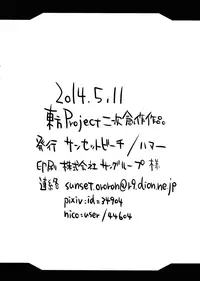 2014.5.11
東方Project二次創作作品
発行 サンセットビーチ/ハマー
印刷 株式会社 サングループ 様
連絡 sunset.ovoron@k9.dion.ne.jp
pixiv:id=34904
nico:user/44604